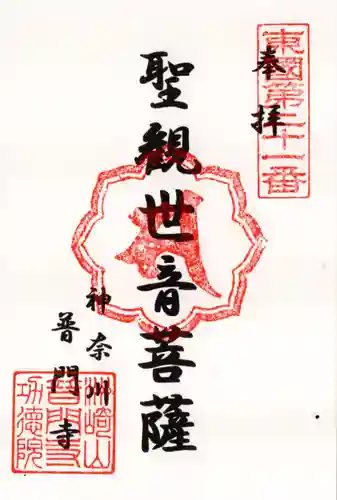 奉拝
東國第二十一番
聖観世音菩薩
神奈川
普門寺
洲崎山
普門寺
功徳院